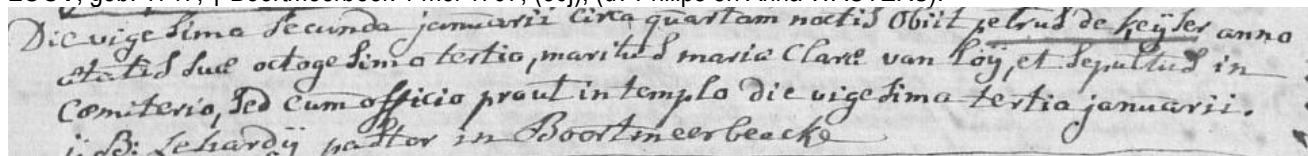 Die vigesima secunda januarii circa quartam noctis obiit petrus de keijser anno
etatis suæ octogesimo tertio, maritus maria Claræ van loÿ, et sepultus in
Cœmiterio, sed cum officio prout in templo die vigesima tertia januarii.
B: Lehardÿ pastor in Boortmeerbeecke